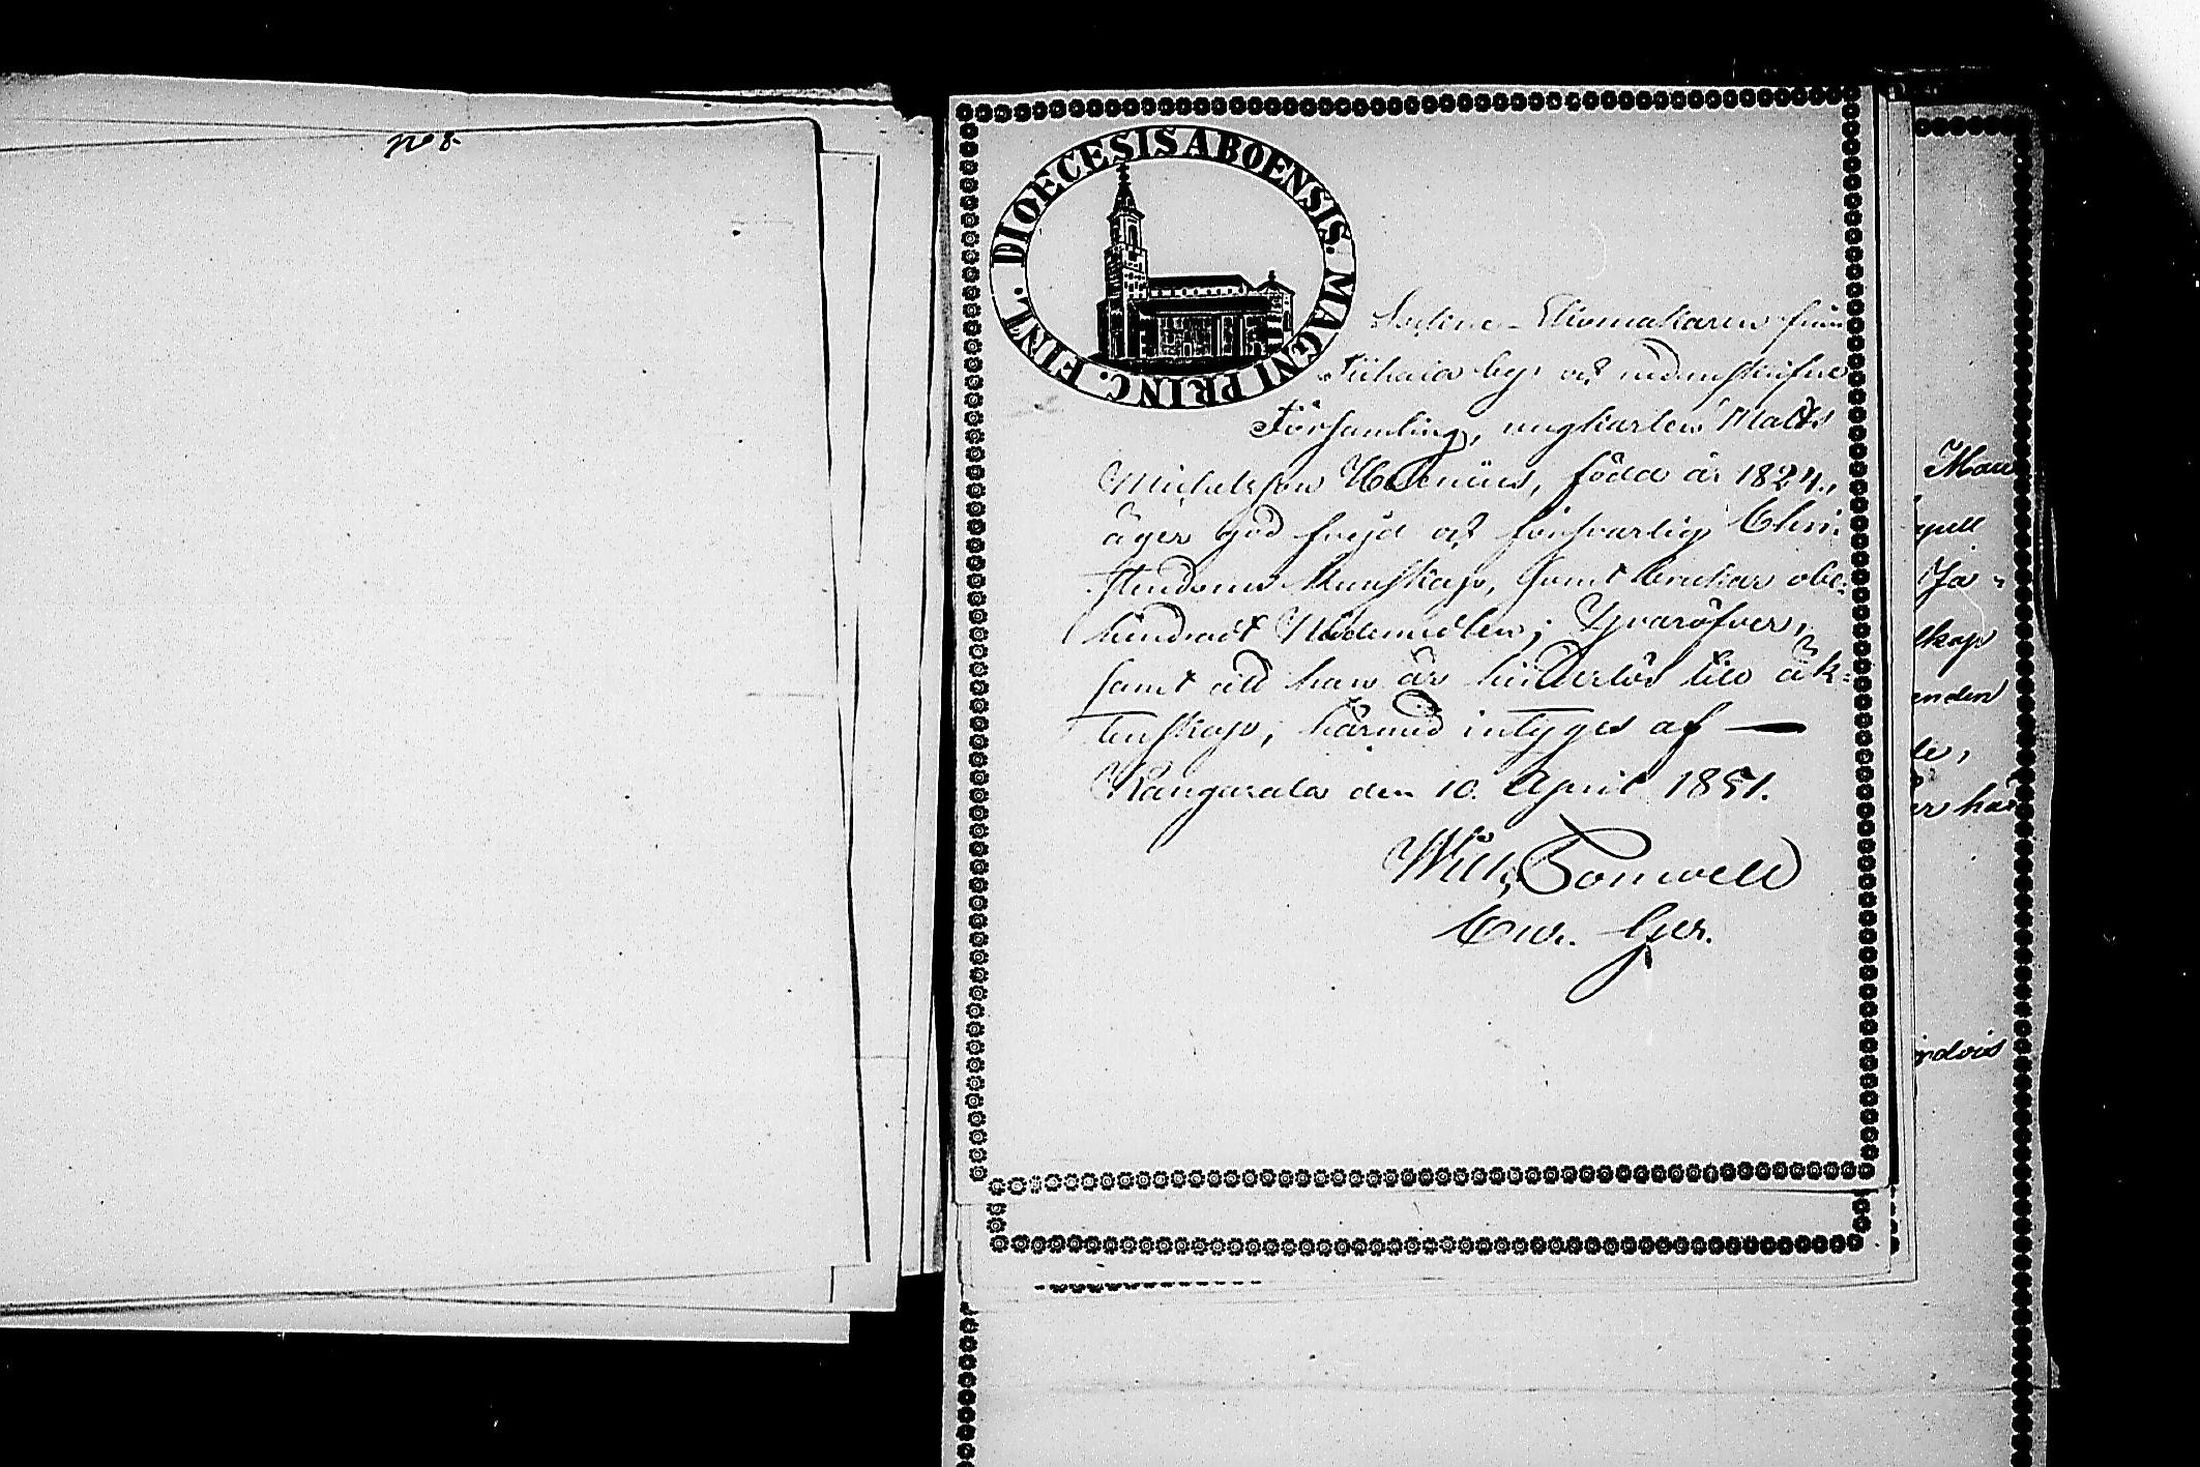 No 8.
DIOECESIS ABOENSIS. MAGNI PRINC. FINL.
Sockne-Skomakaren från
Tiihala by och nedanskrifne
Församling, ungkarlen Matts
Michelsson Helenius, född år 1824,
äger god frejd och försvarlig Chri-
stendoms kunskap, samt brukar obe-
hindradt Nådemedlen; Hvaröfver,
samt att han är hinderlös till äk-
tenskap, härmed intyges af —
Kangasala den 10. April 1851.
Wilh.
Cur. Ger.
Man
apell
Ja-
skap
anden
le,
är här